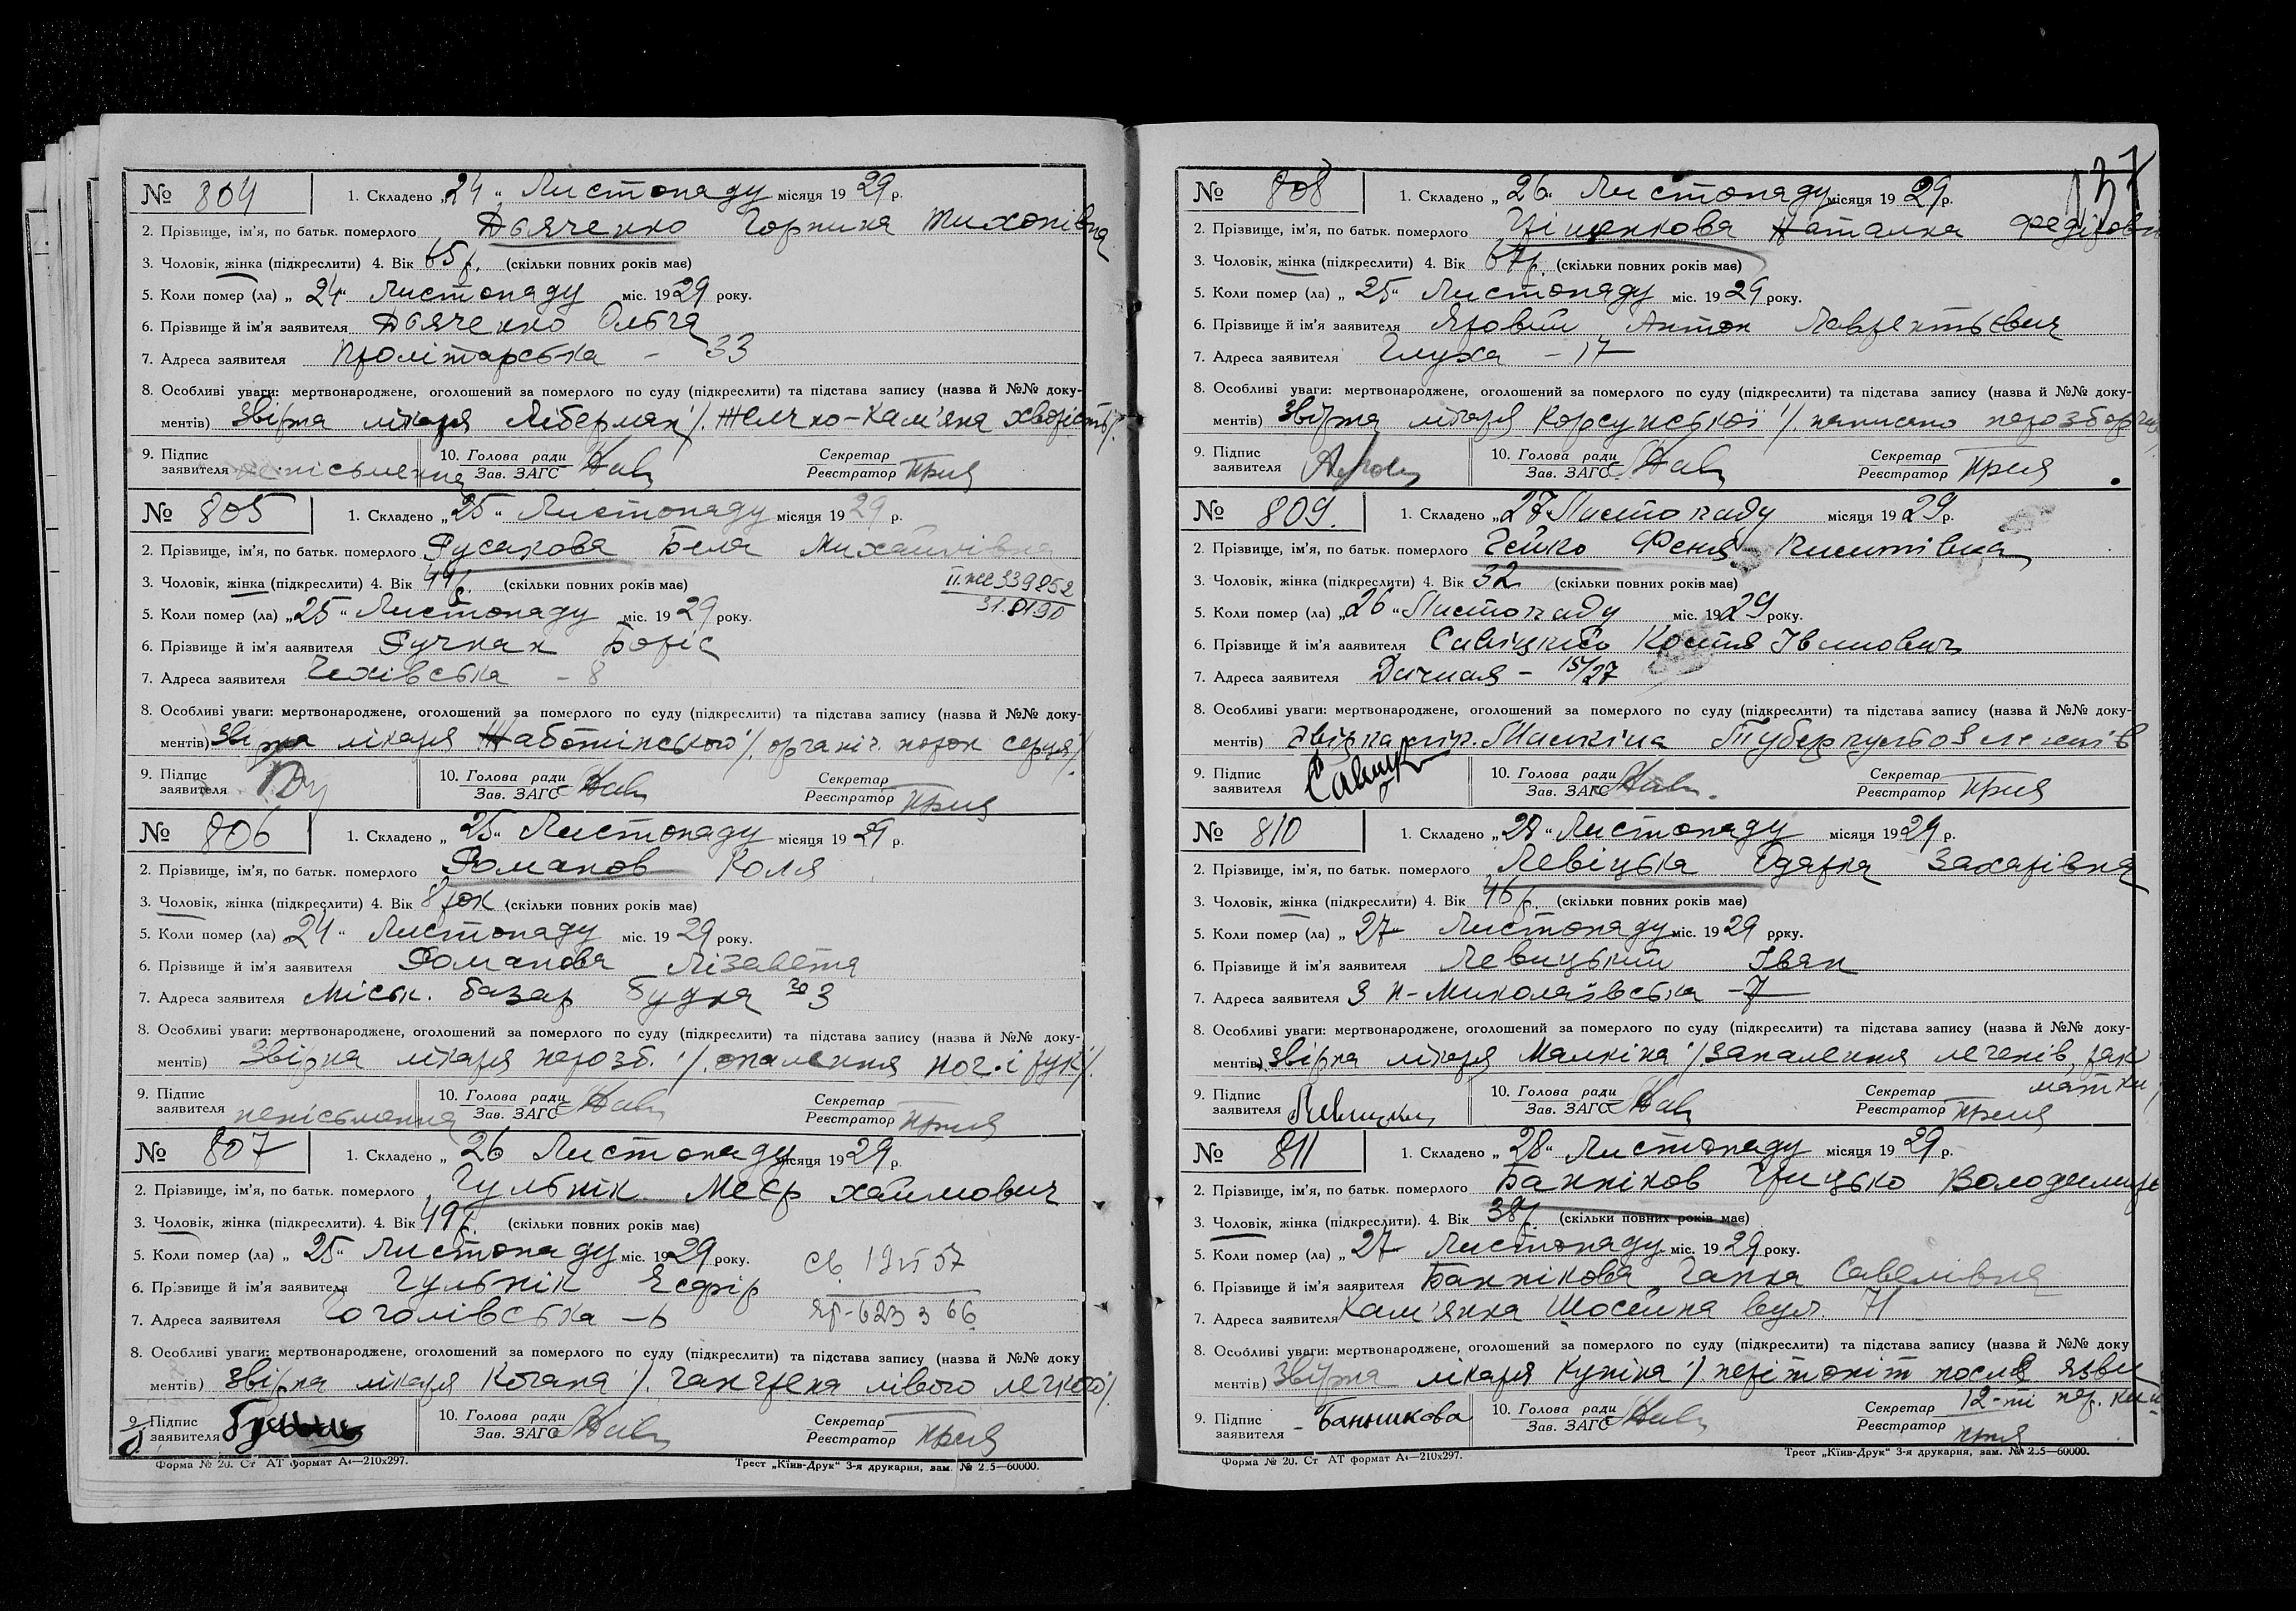 № 804
1. Складено „24“ Листопаду місяця 1929 р.
2. Прізвище, ім’я, по батьк. померлого Дьяченко Горпина Тихонівна
3. Чоловік, жінка (підкреслити) 4. Вік 65 р. (скільки повних років має)
5. Коли помер (ла) „24“ Листопаду міс. 1929 року.
6. Прізвище й ім’я заявителя Дьяченко Ольга
7. Адреса заявителя Пролітарська - 33
8. Особливі уваги: мертвонароджене, оголошений за померлого по суду (підкреслити) та підстава запису (назва й №№ доку-
ментів) Звірка лікаря Ліберман /. Желчно-Кам'яна хворість/.
9. Підпис заявителя непісьменна 10. Голова ради Зав. ЗАГС Секретар Реєстратор
№ 805
1. Складено „25“ Листопаду місяця 1929 р.
2. Прізвище, ім’я, по батьк. померлого Русакова Беля Михайлівна
3. Чоловік, жінка (підкреслити) 4. Вік 44 р. (скільки повних років має)
339852
5. Коли помер (ла) „25“ Листопаду міс. 1929 року.
31.01.90
6. Прізвище й ім’я заявителя Ручкан Боріс
7. Адреса заявителя Чехівська - 8
8. Особливі уваги: мертвонароджене, оголошений за померлого по суду (підкреслити) та підстава запису (назва й №№ доку-
ментів) Звірка лікаря Жаботінського /. органіч. порок серця/.
9. Підпис заявителя 10. Голова ради Зав. ЗАГС Секретар Реєстратор
№ 806
1. Складено „25“ Листопаду місяця 1929 р.
2. Прізвище, ім’я, по батьк. померлого Романов Коля
3. Чоловік, жінка (підкреслити) 4. Вік 8 рок (скільки повних років має)
5. Коли помер (ла) 24“ Листопаду міс. 1929 року.
6. Прізвище й ім’я заявителя Романова Лізавета
7. Адреса заявителя Міськ. базар будка № 3
8. Особливі уваги: мертвонароджене, оголошений за померлого по суду (підкреслити) та підстава запису (назва й №№ доку-
ментів) Звірка лікаря нерозб. /. опалення ног і рук/.
9. Підпис заявителя непісьменна 10. Голова ради Зав. ЗАГС Секретар Реєстратор
№ 807
1. Складено „26 Листопаду місяця 1929 р.
2. Прізвище, ім’я, по батьк. померлого Гульнік Меєр Хаймович
3. Чоловік, жінка (підкреслити). 4. Вік 49 р. (скільки повних років має)
5. Коли помер (ла) „25“ Листопаду міс. 1929 року.
6. Прізвище й ім’я заявителя Гульнік Есфір
7. Адреса заявителя Гоголівська - 6
8. Особливі уваги: мертвонароджене, оголошений за померлого по суду (підкреслити) та підстава запису (назва й №№ доку
ментів) Звірка лікаря Когана /. гангрена лівого легкого/.
9. Підпис заявителя 10. Голова ради Зав. ЗАГС Секретар Реєстратор
Форма № 20. Ст АТ формат А4—210х297. Трест „Київ-Друк“ 3-я друкарня, зам. № 2.5—60000.
137
№ 808
1. Складено „26“ Листопаду місяця 1929 р.
2. Прізвище, ім’я, по батьк. померлого Наталка
3. Чоловік, жінка (підкреслити) 4. Вік 67 р. (скільки повних років має)
5. Коли помер (ла) „25“ Листопаду міс. 1929 року.
6. Прізвище й ім’я заявителя Яровий Антон Лаврентьєвич
7. Адреса заявителя Глуха - 17
8. Особливі уваги: мертвонароджене, оголошений за померлого по суду (підкреслити) та підстава запису (назва й №№ доку-
ментів) Звірка лікаря Корсунської /. написано нерозборчиво
9. Підпис заявителя 10. Голова ради Зав. ЗАГС Секретар Реєстратор
№ 809.
1. Складено „27 Листопаду місяця 1929 р.
2. Прізвище, ім’я, по батьк. померлого Гейко Феня
3. Чоловік, жінка (підкреслити) 4. Вік 32 (скільки повних років має)
5. Коли помер (ла) „26“ Листопаду міс. 1929 року.
6. Прізвище й ім’я заявителя Савіцкий Костя Іванович
7. Адреса заявителя Дачная - 15/27
8. Особливі уваги: мертвонароджене, оголошений за померлого по суду (підкреслити) та підстава запису (назва й №№ доку-
ментів) Звірка лік. Малкіна Туберкульоз легенів
9. Підпис заявителя 10. Голова ради Зав. ЗАГС Секретар Реєстратор
№ 810
1. Складено „28“ Листопаду місяця 1929 р.
2. Прізвище, ім’я, по батьк. померлого Левіцька Одарка Захарівна
3. Чоловік, жінка (підкреслити) 4. Вік 46 р. (скільки повних років має)
5. Коли помер (ла) „27 Листопаду міс. 1929 року.
6. Прізвище й ім’я заявителя Левицький Іван
7. Адреса заявителя 3 н-Миколаївська - 7
8. Особливі уваги: мертвонароджене, оголошений за померлого по суду (підкреслити) та підстава запису (назва й №№ доку-
ментів) Звірка лікаря Малкіна /. запалення легенів, рак
матки/
9. Підпис заявителя 10. Голова ради Зав. ЗАГС Секретар Реєстратор
№ 811
1. Складено „28“ Листопаду місяця 1929 р.
2. Прізвище, ім’я, по батьк. померлого Банніков Грицько
3. Чоловік, жінка (підкреслити). 4. Вік 38 р. (скільки повних років має)
5. Коли помер (ла) „27 Листопаду міс. 1929 року.
6. Прізвище й ім’я заявителя Баннікова Ганна Савелівна
7. Адреса заявителя Кам'янка Шосейна вул. 71
8. Особливі уваги: мертвонароджене, оголошений за померлого по суду (підкреслити) та підстава запису (назва й №№ доку
ментів) Звірка лікаря Куніна / перітоніт после язви
12-ті пер.
9. Підпис заявителя Банникова 10. Голова ради Зав. ЗАГС Секретар Реєстратор
Форма № 20. Ст АТ формат А4—210х297. Трест „Київ-Друк“ 3-я друкарня, зам. № 2.5—60000.